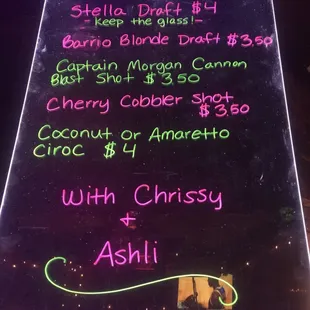 Stella Draft $4
-Keep the glass!-
Barrio Blonde Draft $3.50
Captain Morgan Cannon
Blast Shot $3.50
Cherry Cobbler Shot
$3.50
Coconut or Amaretto
Ciroc $4
With Chrissy
+
Ashli